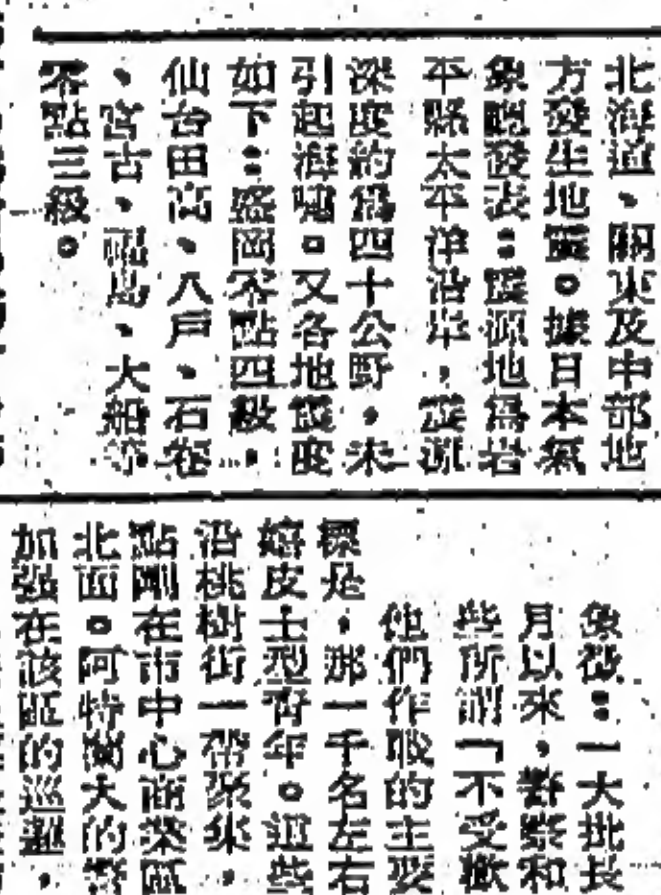 北海道、關東及中部地
方發生地震。據日本氣
象廳發表：震源地爲岩
手縣太平洋沿岸，震源
深度約爲四十公野，未
引起海嘯。又各地震度
如下：盛岡零點四級，
仙台田高、八戶、石卷
、宮古、福島、大船等
零點三級。
象徵：一大批長
月以來，警察和
些所謂「不受歡
他們作歌的主要
標是，那一千名左右
嬉皮士型青年。這些
沿桃樹街一帶聚集，
點剛在市中心商業區
北面。阿特蘭大的警
加强在該區的巡邏，